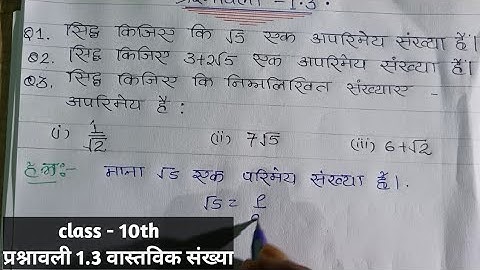 प्रश्नावली - 1.3.
Q1. सिद्ध किजिए कि √5 एक अपरिमेय संख्या है।
Q2. सिद्ध किजिए 3+2√5 एक अपरिमेय संख्या है।
Q3. सिद्ध किजिए कि निम्नलिखित संख्याए -
अपरिमेय है :
(i) 1/√2 (ii) 7√5 (iii) 6+√2
हल:- माना √5 एक परिमेय संख्या है।
√5 = p
class - 10th
प्रश्नावली 1.3 वास्तविक संख्या